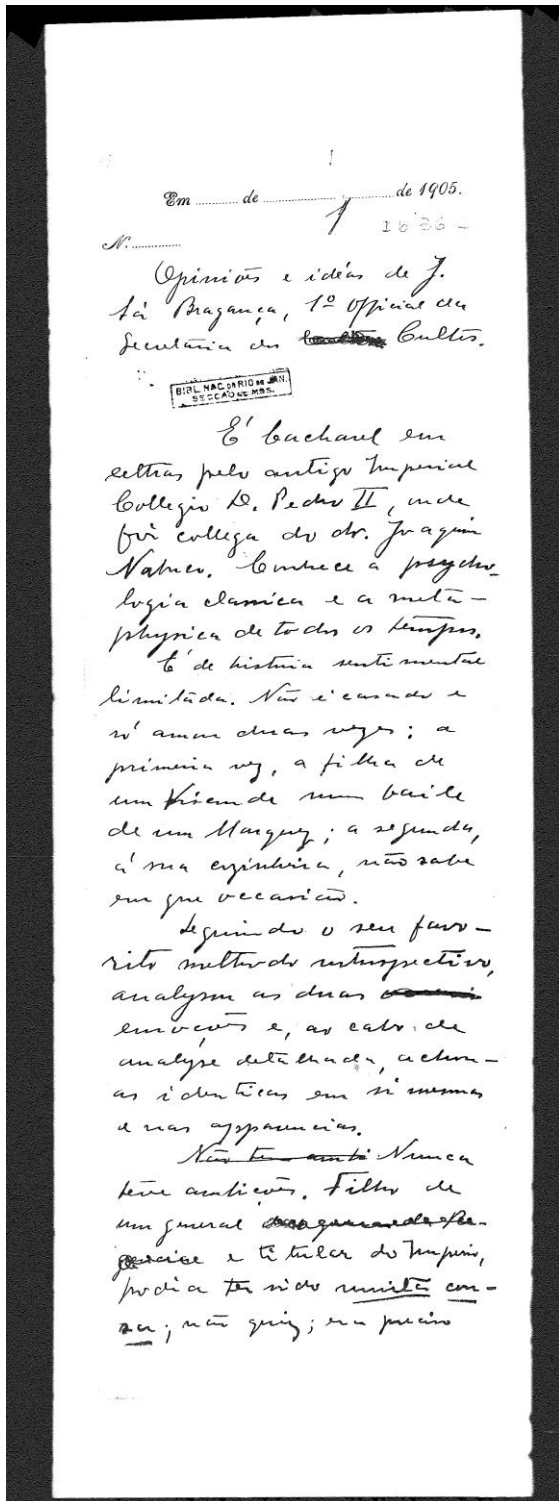 1
Em ........ de ........................ de 1905.
1
1636
N.º ............
Opiniões e idéas de J.
Sá Bragança, 1º official da
Secretaria dos Cultos.
BIBL. NAC. DO RIO DE JAN.
SECÇÃO DE MSS.
É bacharel em
lettras pelo antigo Imperial
Collegio D. Pedro II, onde
foi collega do dr. Joaquim
Nabuco. Conhece a psycho-
logia classica e a meta-
physica de todos os tempos.
É de historia sentimental
limitada. Não é casado e
só amou duas vezes; a
primeira vez, a filha de
um Visconde num baile
de um Marquez; a segunda,
á sua cozinheira, não sabe
em que occasião.
Seguindo o seu favo-
rito methodo introspectivo,
analysou as duas
emoções e, ao cabo de
analyse detalhada, achou-
as identicas em si mesmas
e nas apparencias.
Não tem ambi Nunca
teve ambições. Filho de
um general
e titular do Imperio,
podia ter sido muita cou-
sa; não quiz; era preciso